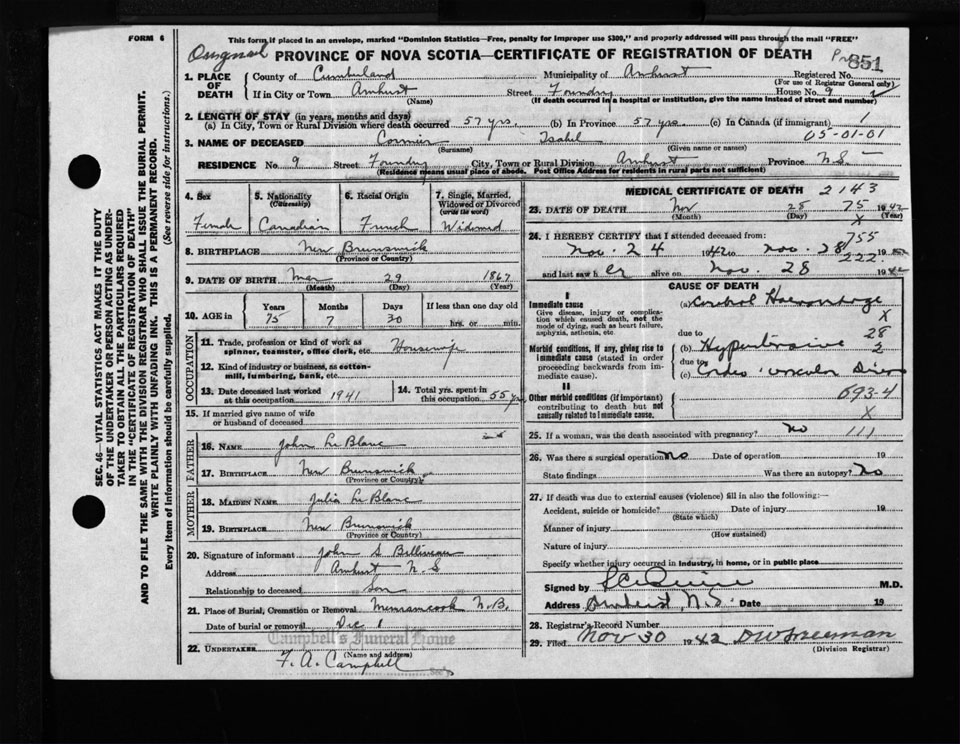 FORM 6
This form if placed in an envelope, marked "Dominion Statistics—Free, penalty for improper use $300," and properly addressed will pass through the mail "FREE"
Original
PROVINCE OF NOVA SCOTIA—CERTIFICATE OF REGISTRATION OF DEATH
851
1. PLACE OF DEATH
County of Cumberland Municipality of Amherst Registered No.
(For use of Registrar General only)
If in City or Town Amherst Street Foundry House No. 9
(Name) (If death occurred in a hospital or institution, give the name instead of street and number)
2. LENGTH OF STAY (in years, months and days)
(a) In City, Town or Rural Division where death occurred 57 yrs. (b) In Province 57 yrs (c) In Canada (if immigrant) 1
05-01-01
3. NAME OF DECEASED Cormier Isabel
(Surname) (Given name or names)
RESIDENCE No. 9 Street Foundry City, Town or Rural Division Amherst Province N.S.
(Residence means usual place of abode. Post Office Address for residents in rural parts not sufficient)
4. Sex
Female
5. Nationality
(Citizenship)
Canadian
6. Racial Origin
French
7. Single, Married, Widowed or Divorced
(write the word)
Widowed
8. BIRTHPLACE New Brunswick
(Province or Country)
9. DATE OF BIRTH 29 1867
(Month) (Day) (Year)
10. AGE in
Years Months Days If less than one day old
75 7 30 hrs. or min.
OCCUPATION
11. Trade, profession or kind of work as spinner, teamster, office clerk, etc. Housewife
12. Kind of industry or business, as cotton-mill, lumbering, bank, etc.
13. Date deceased last worked at this occupation 1941
14. Total yrs. spent in this occupation 55 yrs
15. If married give name of wife or husband of deceased
FATHER
16. NAME John Le Blanc
17. BIRTHPLACE New Brunswick
(Province or Country)
MOTHER
18. MAIDEN NAME Julia Le Blanc
19. BIRTHPLACE New Brunswick
(Province or Country)
20. Signature of informant John S Belliveau
Address Amherst N S
Relationship to deceased Son
21. Place of Burial, Cremation or Removal Memramcook N.B.
Date of burial or removal Dec 1
Campbell's Funeral Home
22. UNDERTAKER F. A. Campbell
(Name and address)
MEDICAL CERTIFICATE OF DEATH 2143
23. DATE OF DEATH Nov 28 75 1942
(Month) (Day) (Year)
X
24. I HEREBY CERTIFY that I attended deceased from:
755
Nov. 24 1942 to Nov. 28 19
222
and last saw her alive on Nov. 28 1942
CAUSE OF DEATH
I
Immediate cause
Give disease, injury or complication which caused death, not the mode of dying, such as heart failure, asphyxia, asthenia, etc.
(a) Cerebral Haemorrhage
X
due to 28
Morbid conditions, if any, giving rise to immediate cause (stated in order proceeding backwards from immediate cause).
(b) 2
due to
(c)
II
Other morbid conditions (if important) contributing to death but not causally related to immediate cause.
693-4
X
25. If a woman, was the death associated with pregnancy? No 111
26. Was there a surgical operation No Date of operation 19
State findings Was there an autopsy? No
27. If death was due to external causes (violence) fill in also the following:—
Accident, suicide or homicide? Date of injury 19
(State which)
Manner of injury
(How sustained)
Nature of injury
Specify whether injury occurred in industry, in home, or in public place
Signed by M.D.
Address Amherst, N.S. Date 19
28. Registrar's Record Number
29. Filed Nov 30 1942 D W Freeman
(Division Registrar)
SEC. 46—VITAL STATISTICS ACT MAKES IT THE DUTY
OF THE UNDERTAKER OR PERSON ACTING AS UNDERTAKER TO OBTAIN ALL THE PARTICULARS REQUIRED
IN THE "CERTIFICATE OF REGISTRATION OF DEATH"
AND TO FILE THE SAME WITH THE DIVISION REGISTRAR WHO SHALL ISSUE THE BURIAL PERMIT.
WRITE PLAINLY WITH UNFADING INK. THIS IS A PERMANENT RECORD.
Every item of information should be carefully supplied. (See reverse side for instructions.)